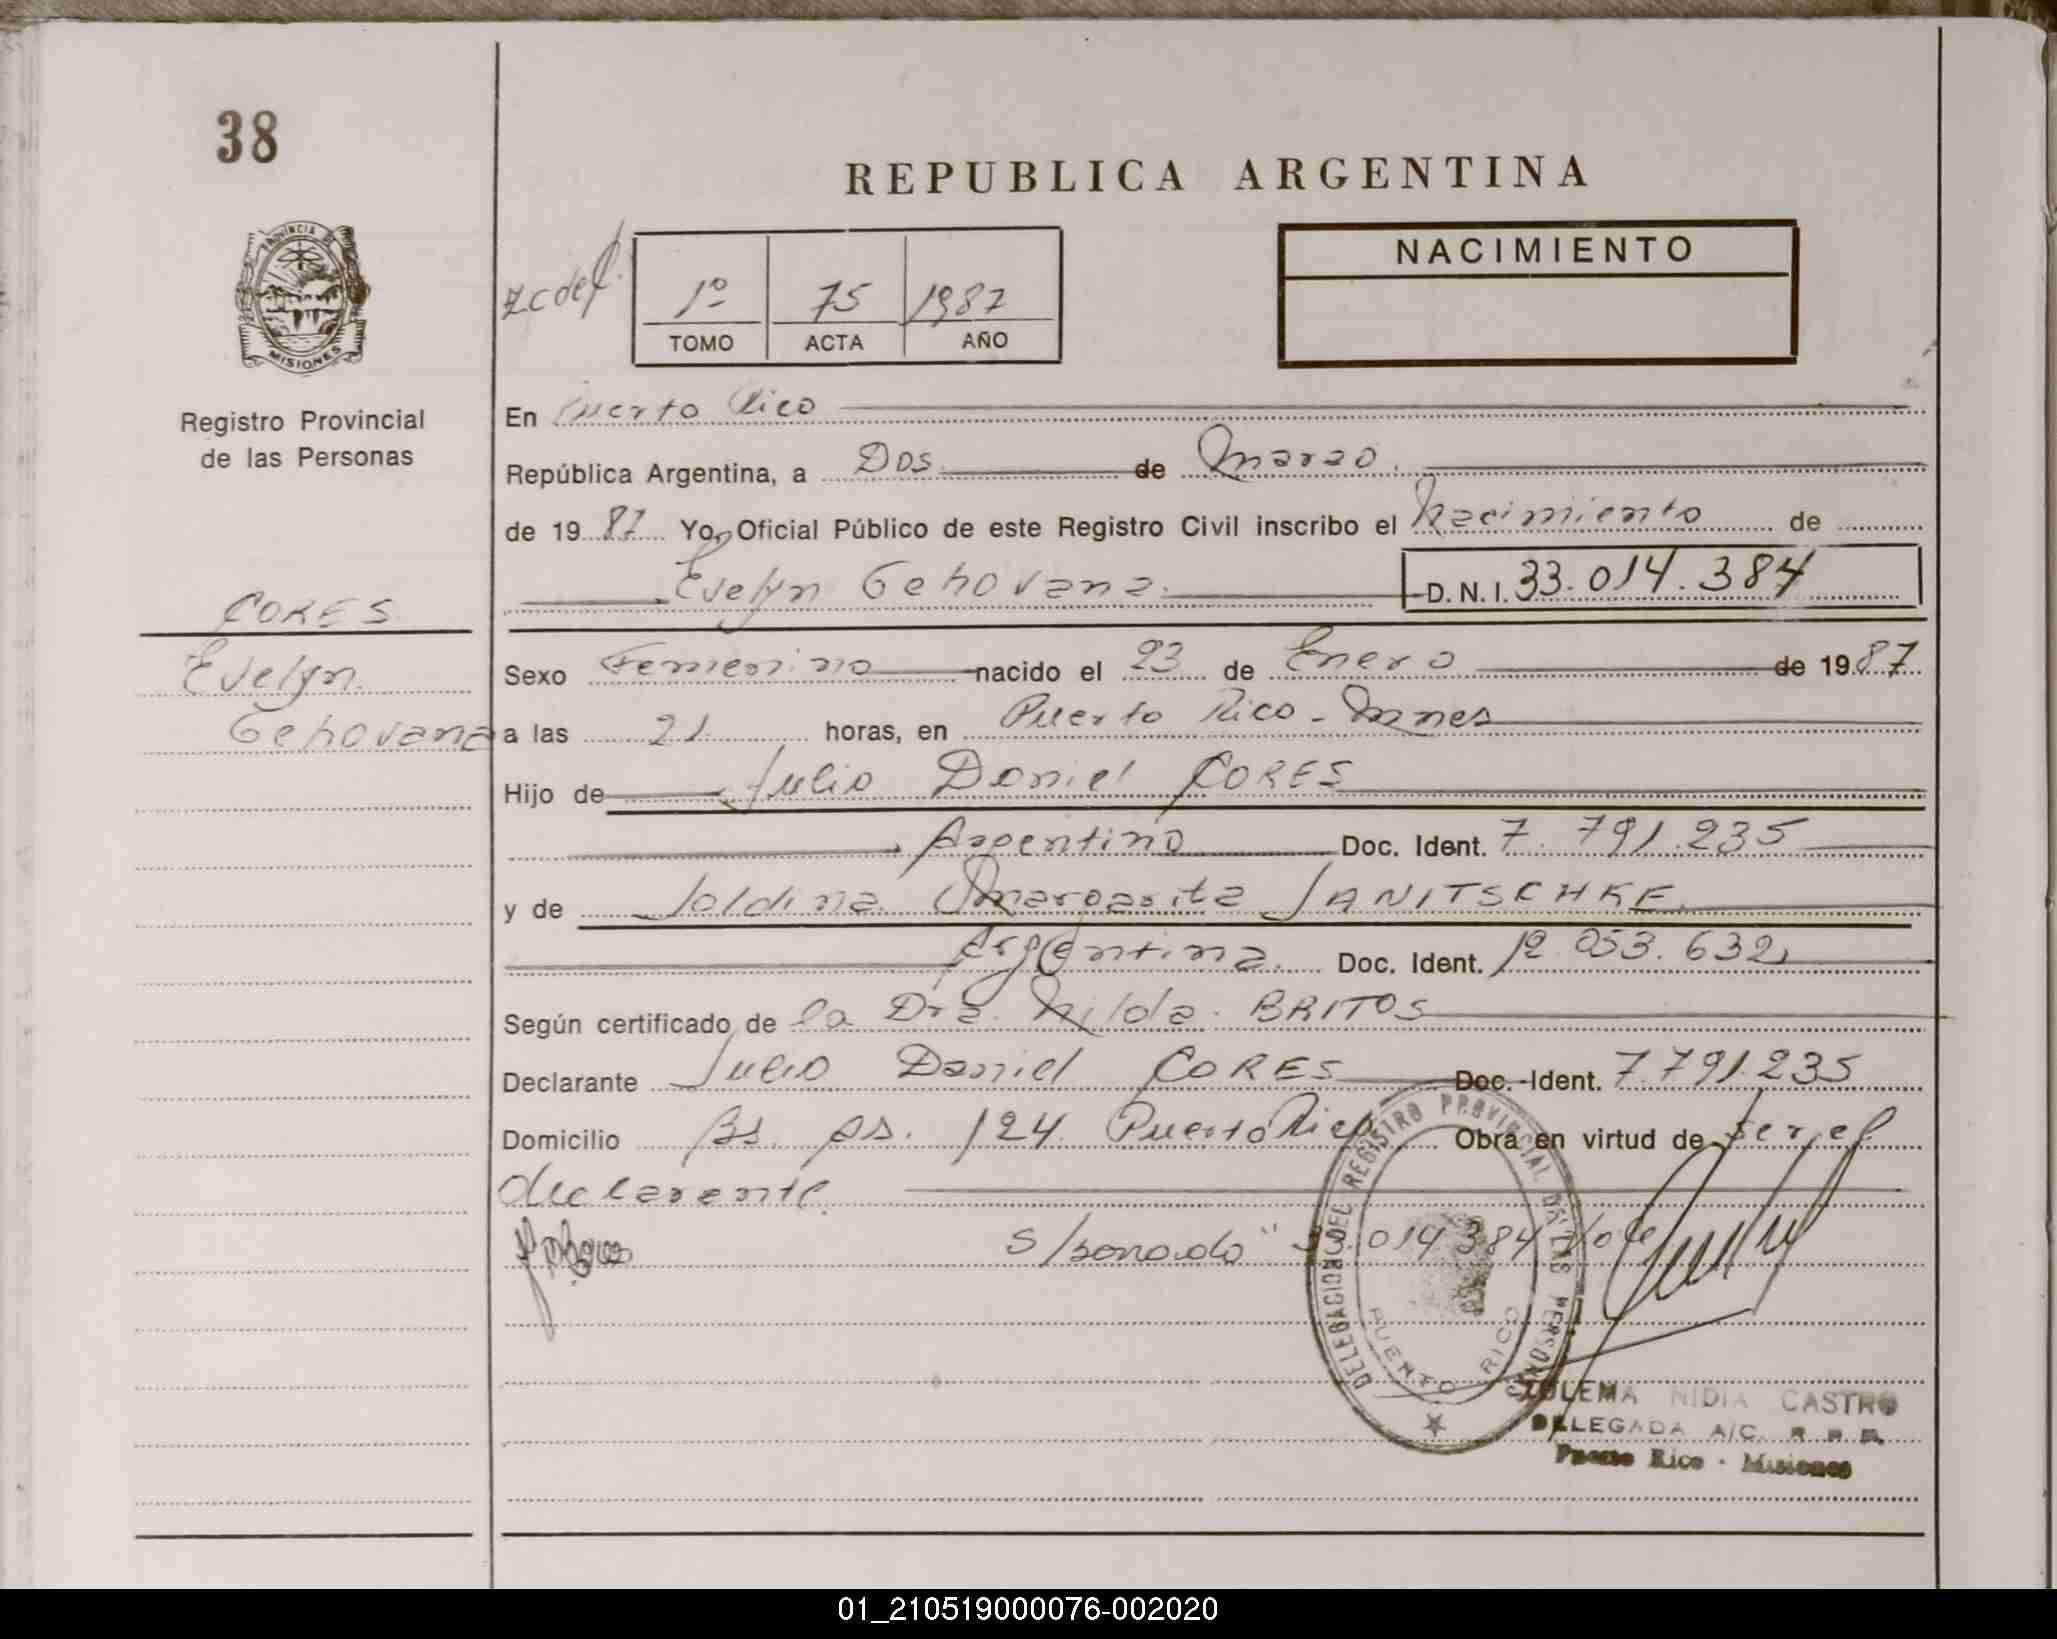 38
REPUBLICA ARGENTINA
PROVINCIA DE
MISIONES
Registro Provincial
de las Personas
1º 75 1987
TOMO ACTA AÑO
NACIMIENTO
En Puerto Rico
República Argentina, a Dos de Marzo
de 19 87 Yo, Oficial Público de este Registro Civil inscribo el Nacimiento de
Evelyn Gehovana. D. N. I. 33.014.384
CORES
Evelyn
Gehovana
Sexo Femenino nacido el 23 de Enero de 19 87
a las 21 horas, en Puerto Rico - Mnes
Hijo de Julio Daniel CORES
Argentino Doc. Ident. 7.791.235
y de Joldina Margarita JANITSCHKE
Argentina. Doc. Ident. 12.053.632
Según certificado de la Dra. Nilda BRITOS
Declarante Julio Daniel CORES Doc. Ident. 7.791.235
Domicilio Bs. As. 124 Puerto Rico Obra en virtud de ser el
declarante.
S/borrado " 3 .014 384 Vale
DELEGACION DEL REGISTRO PROVINCIAL DE LAS PERSONAS
PUERTO RICO
ZULEMA NIDIA CASTRO
DELEGADA A/C.
Puerto Rico - Misiones
01_210519000076-002020